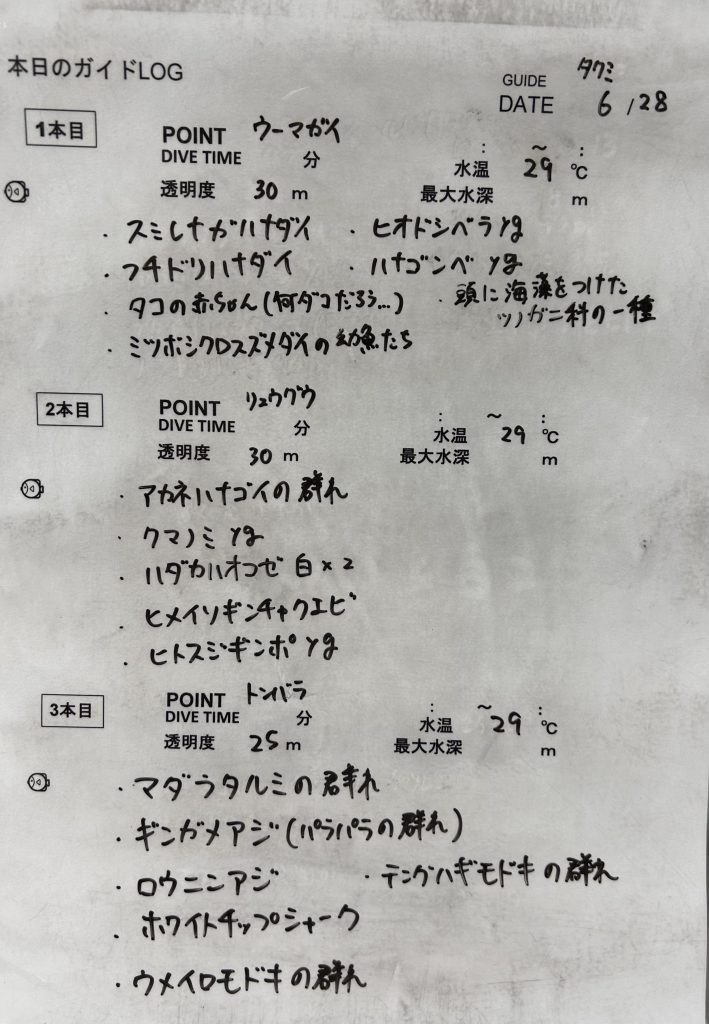 本日のガイドLOG
GUIDE タクミ
DATE 6/28
1本目
POINT ウーマガイ
DIVE TIME 分 : ～ :
水温 29 ℃
透明度 30 m 最大水深 m
・スミレナガハナダイ ・ヒオドシベラ yg
・フチドリハナダイ ・ハナゴンベ yg
・タコの赤ちゃん(何ダコだろう…) ・頭に海藻をつけた
ツノガニ科の一種
・ミツボシクロスズメダイの幼魚たち
2本目
POINT リュウグウ
DIVE TIME 分 : ～ :
水温 29 ℃
透明度 30 m 最大水深 m
・アカネハナゴイの群れ
・クマノミ yg
・ハダカハオコゼ 白×2
・ヒメイソギンチャクエビ
・ヒトスジギンポ yg
3本目
POINT トンバラ
DIVE TIME 分 : ～ :
水温 29 ℃
透明度 25 m 最大水深 m
・マダラタルミの群れ
・ギンガメアジ(パラパラの群れ)
・ロウニンアジ ・テングハギモドキの群れ
・ホワイトチップシャーク
・ウメイロモドキの群れ